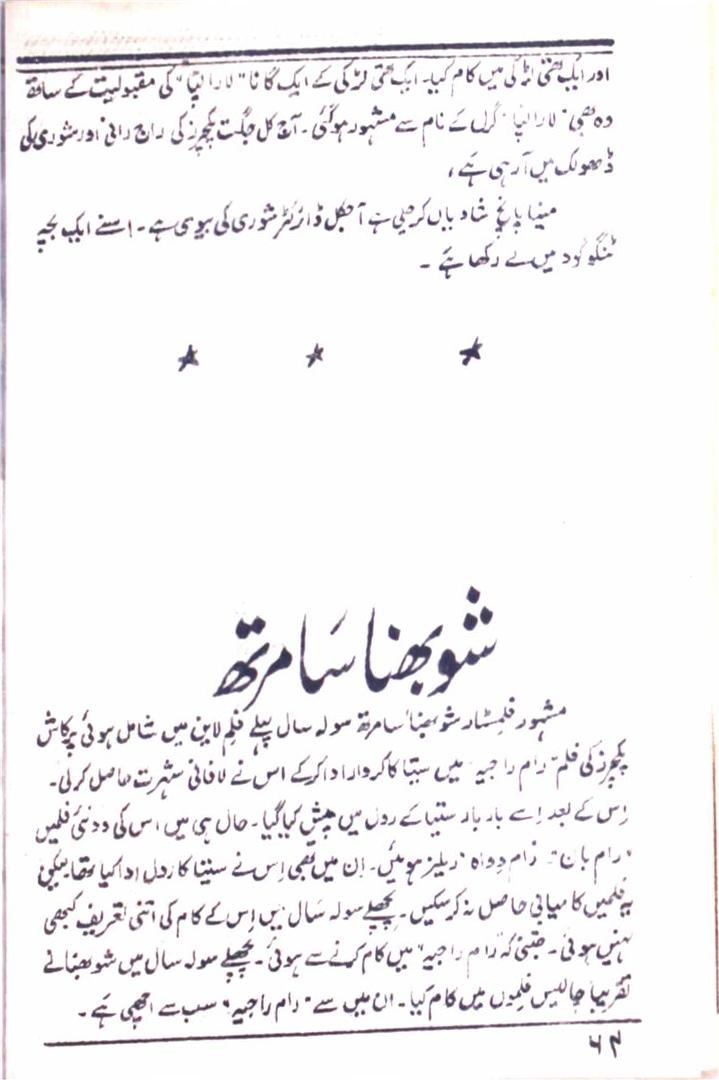 اور ایک تھی لڑکی میں کام کیا۔ ایک تھی لڑکی کے ایک گانا "لارالپا" کی مقبولیت کے ساتھ
وہ بھی "لارالپا" گرل کے نام سے مشہور ہوگئی۔ آج کل جگت پکچرز کی راج رانی اور شوری کی
ڈھولک میں آ رہی ہے،
مینا پانچ شادیاں کر چلی ہے آجکل ڈائرکٹر شوری کی بیوی ہے۔ اسنے ایک بچہ
ٹنگو گود میں لے رکھا ہے۔
★ ★ ★
شوبھنا سامرتھ
مشہور فلمسٹار شوبھنا سامرتھ سولہ سال پہلے فلم لاین میں شامل ہوئی پرکاش
پکچرز کی فلم "رام راجیہ" میں سیتا کا کردار ادا کرکے اس نے لافانی شہرت حاصل کرلی۔
اِس کے بعد اِسے بار بار سیتا کے رول میں پیش کیا گیا۔ حال ہی میں اس کی دو نئی فلمیں
"رام بان" "رام وواہ" ریلیز ہوئیں۔ اِن میں بھی اِس نے سیتا کا رول ادا کیا تھا لیکن
یہ فلمیں کامیابی حاصل نہ کرسکیں۔ پچھلے سولہ سال میں اِس کے کام کی اتنی تعریف کبھی
نہیں ہوئی۔ جتنی کہ "رام راجیہ" میں کام کرنے سے ہوئی۔ پچھلے سولہ سال میں شوبھنا نے
تقریباً چالیس فلموں میں کام کیا۔ ان میں سے "رام راجیہ" سب سے اچھی ہے۔
۶۴